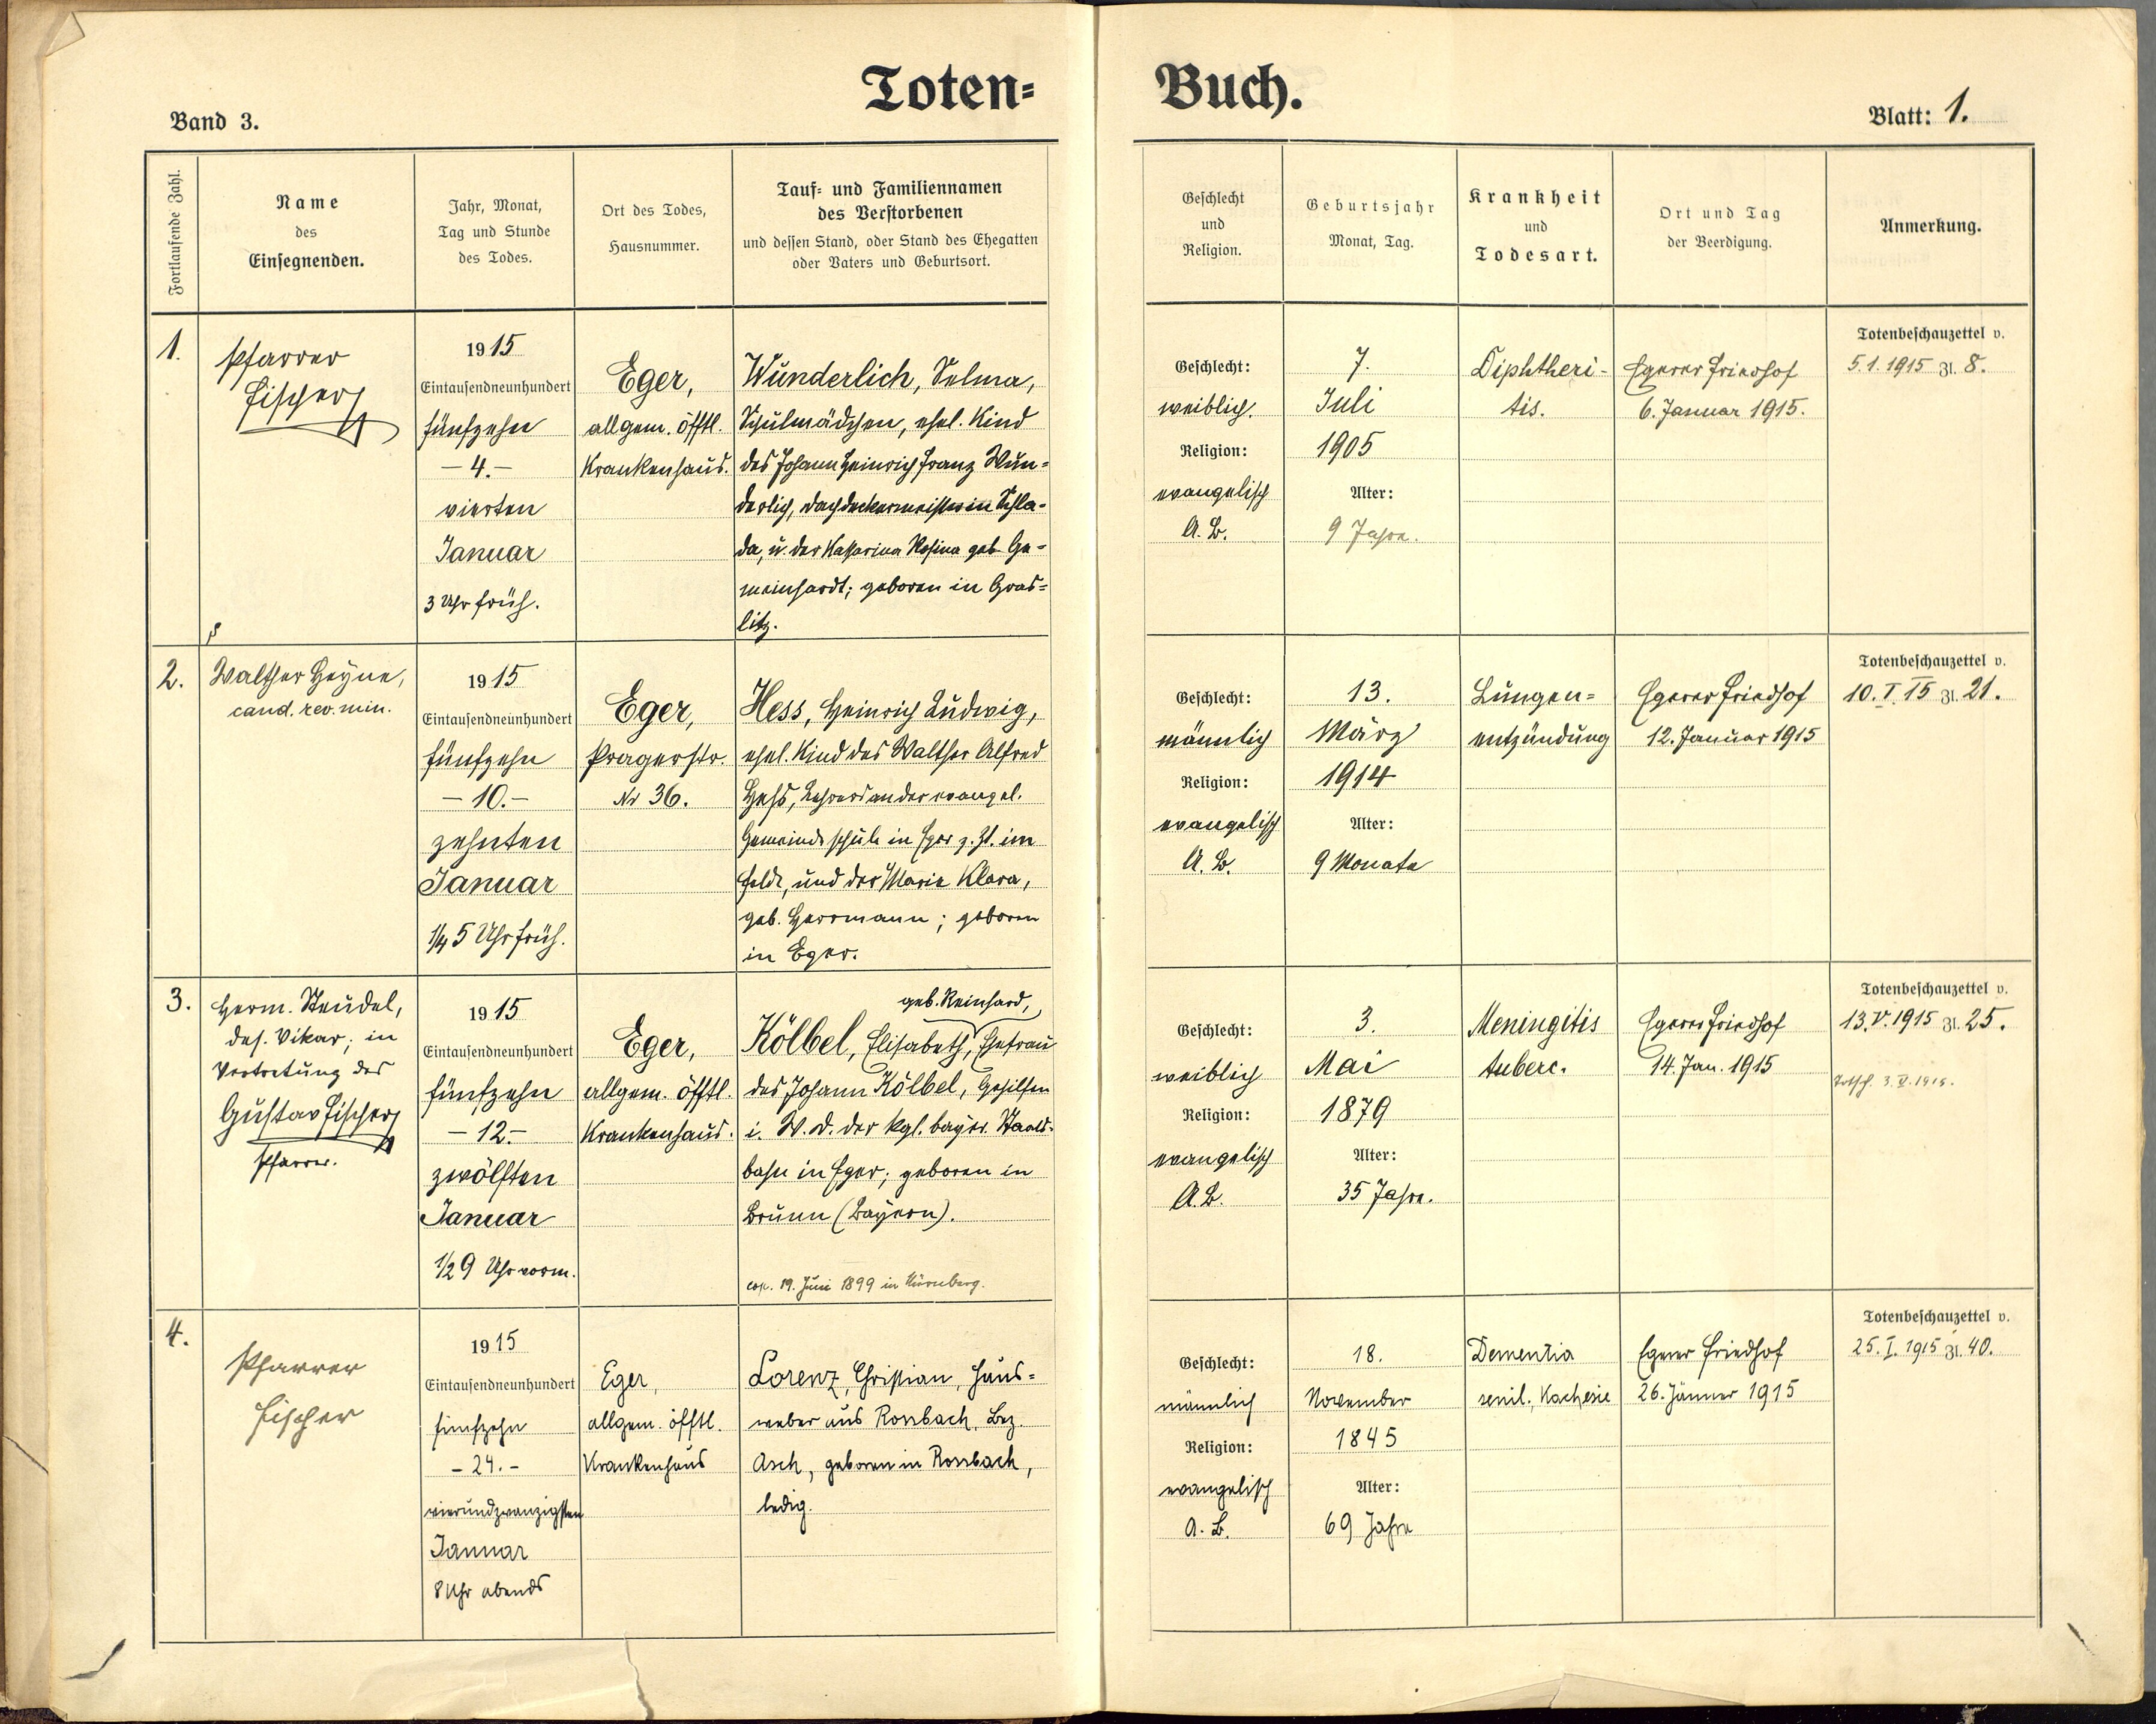 Toten= Buch.
Band 3.
Blatt: 1.
Fortlaufende Zahl.
Name
des
Einsegnenden.
Jahr, Monat,
Tag und Stunde
des Todes.
Ort des Todes,
Hausnummer.
Tauf= und Familiennamen
des Verstorbenen
und dessen Stand, oder Stand des Ehegatten
oder Vaters und Geburtsort.
Geschlecht
und
Religion.
Geburtsjahr
Monat, Tag.
Krankheit
und
Todesart.
Ort und Tag
der Beerdigung.
Anmerkung.
1.
Pfarrer
Fischer
1915
Eintausendneunhundert
fünfzehn
- 4. -
vierten
Januar
3 Uhr früh.
Eger,
allgem. öfftl.
Krankenhaus.
Wunderlich, Selma,
Schulmädchen, ehel. Kind
des Johann Heinrich Franz Wun=
derlich, Dachdeckermeister in Schla=
da, u. der Katharina Rosina geb. Ge=
meinhardt; geboren in Gras=
litz.
Geschlecht:
weiblich.
Religion:
evangelisch
A. B.
7.
Juli
1905
Alter:
9 Jahre.
Diphtheri-
tis.
Egerer Friedhof
6. Januar 1915.
Totenbeschauzettel v.
5. 1. 1915 Zl. 8.
2.
Walther Heyne,
cand. rev. min.
1915
Eintausendneunhundert
fünfzehn
- 10. -
zehnten
Januar
1/4 5 Uhr früh.
Eger,
Pragerstr.
Nr 36.
Hess, Heinrich Ludwig,
ehel. Kind des Walther Alfred
Heß, Lehrers an der evangel.
Gemeindeschule in Eger z. Zt. im
Felde, und der Marie Klara,
geb. Herrmann; geboren
in Eger.
Geschlecht:
männlich
Religion:
evangelisch
A. B.
13.
März
1914
Alter:
9 Monate
Lungen=
entzündung
Egerer Friedhof
12. Januar 1915
Totenbeschauzettel v.
10. I. 15 Zl. 21.
3.
Herm. Steudel,
des. Vikar; in
Vertretung des
Gustav Fischer
Pfarrer.
1915
Eintausendneunhundert
fünfzehn
- 12. -
zwölften
Januar
1/2 9 Uhr vorm.
Eger,
allgem. öfftl.
Krankenhaus.
geb. Reinhard,
Kölbel, Elisabeth, Ehefrau
des Johann Kölbel, Gehilfen
i. W. D. der kgl. bayer. Staats-
bahn in Eger; geboren in
Brunn (Bayern).
cop. 19. Juni 1899 in Nürnberg.
Geschlecht:
weiblich
Religion:
evangelisch
A. B.
3.
Mai
1879
Alter:
35 Jahre.
Meningitis
tuberc.
Egerer Friedhof
14. Jan. 1915
Totenbeschauzettel v.
13. V. 1915 Zl. 25.
3. V. 1915.
4.
Pfarrer
Fischer
1915
Eintausendneunhundert
fünfzehn
- 24. -
vierundzwanzigsten
Januar
8 Uhr abends
Eger,
allgem. öfftl.
Krankenhaus
Lorenz, Christian, Haus=
weber aus Rossbach, Bez.
Asch, geboren in Rossbach,
ledig.
Geschlecht:
männlich
Religion:
evangelisch
A. B.
18.
November
1845
Alter:
69 Jahre
Dementia
senil., Kachexie
Egerer Friedhof
26. Jänner 1915
Totenbeschauzettel v.
25. I. 1915 Zl. 40.